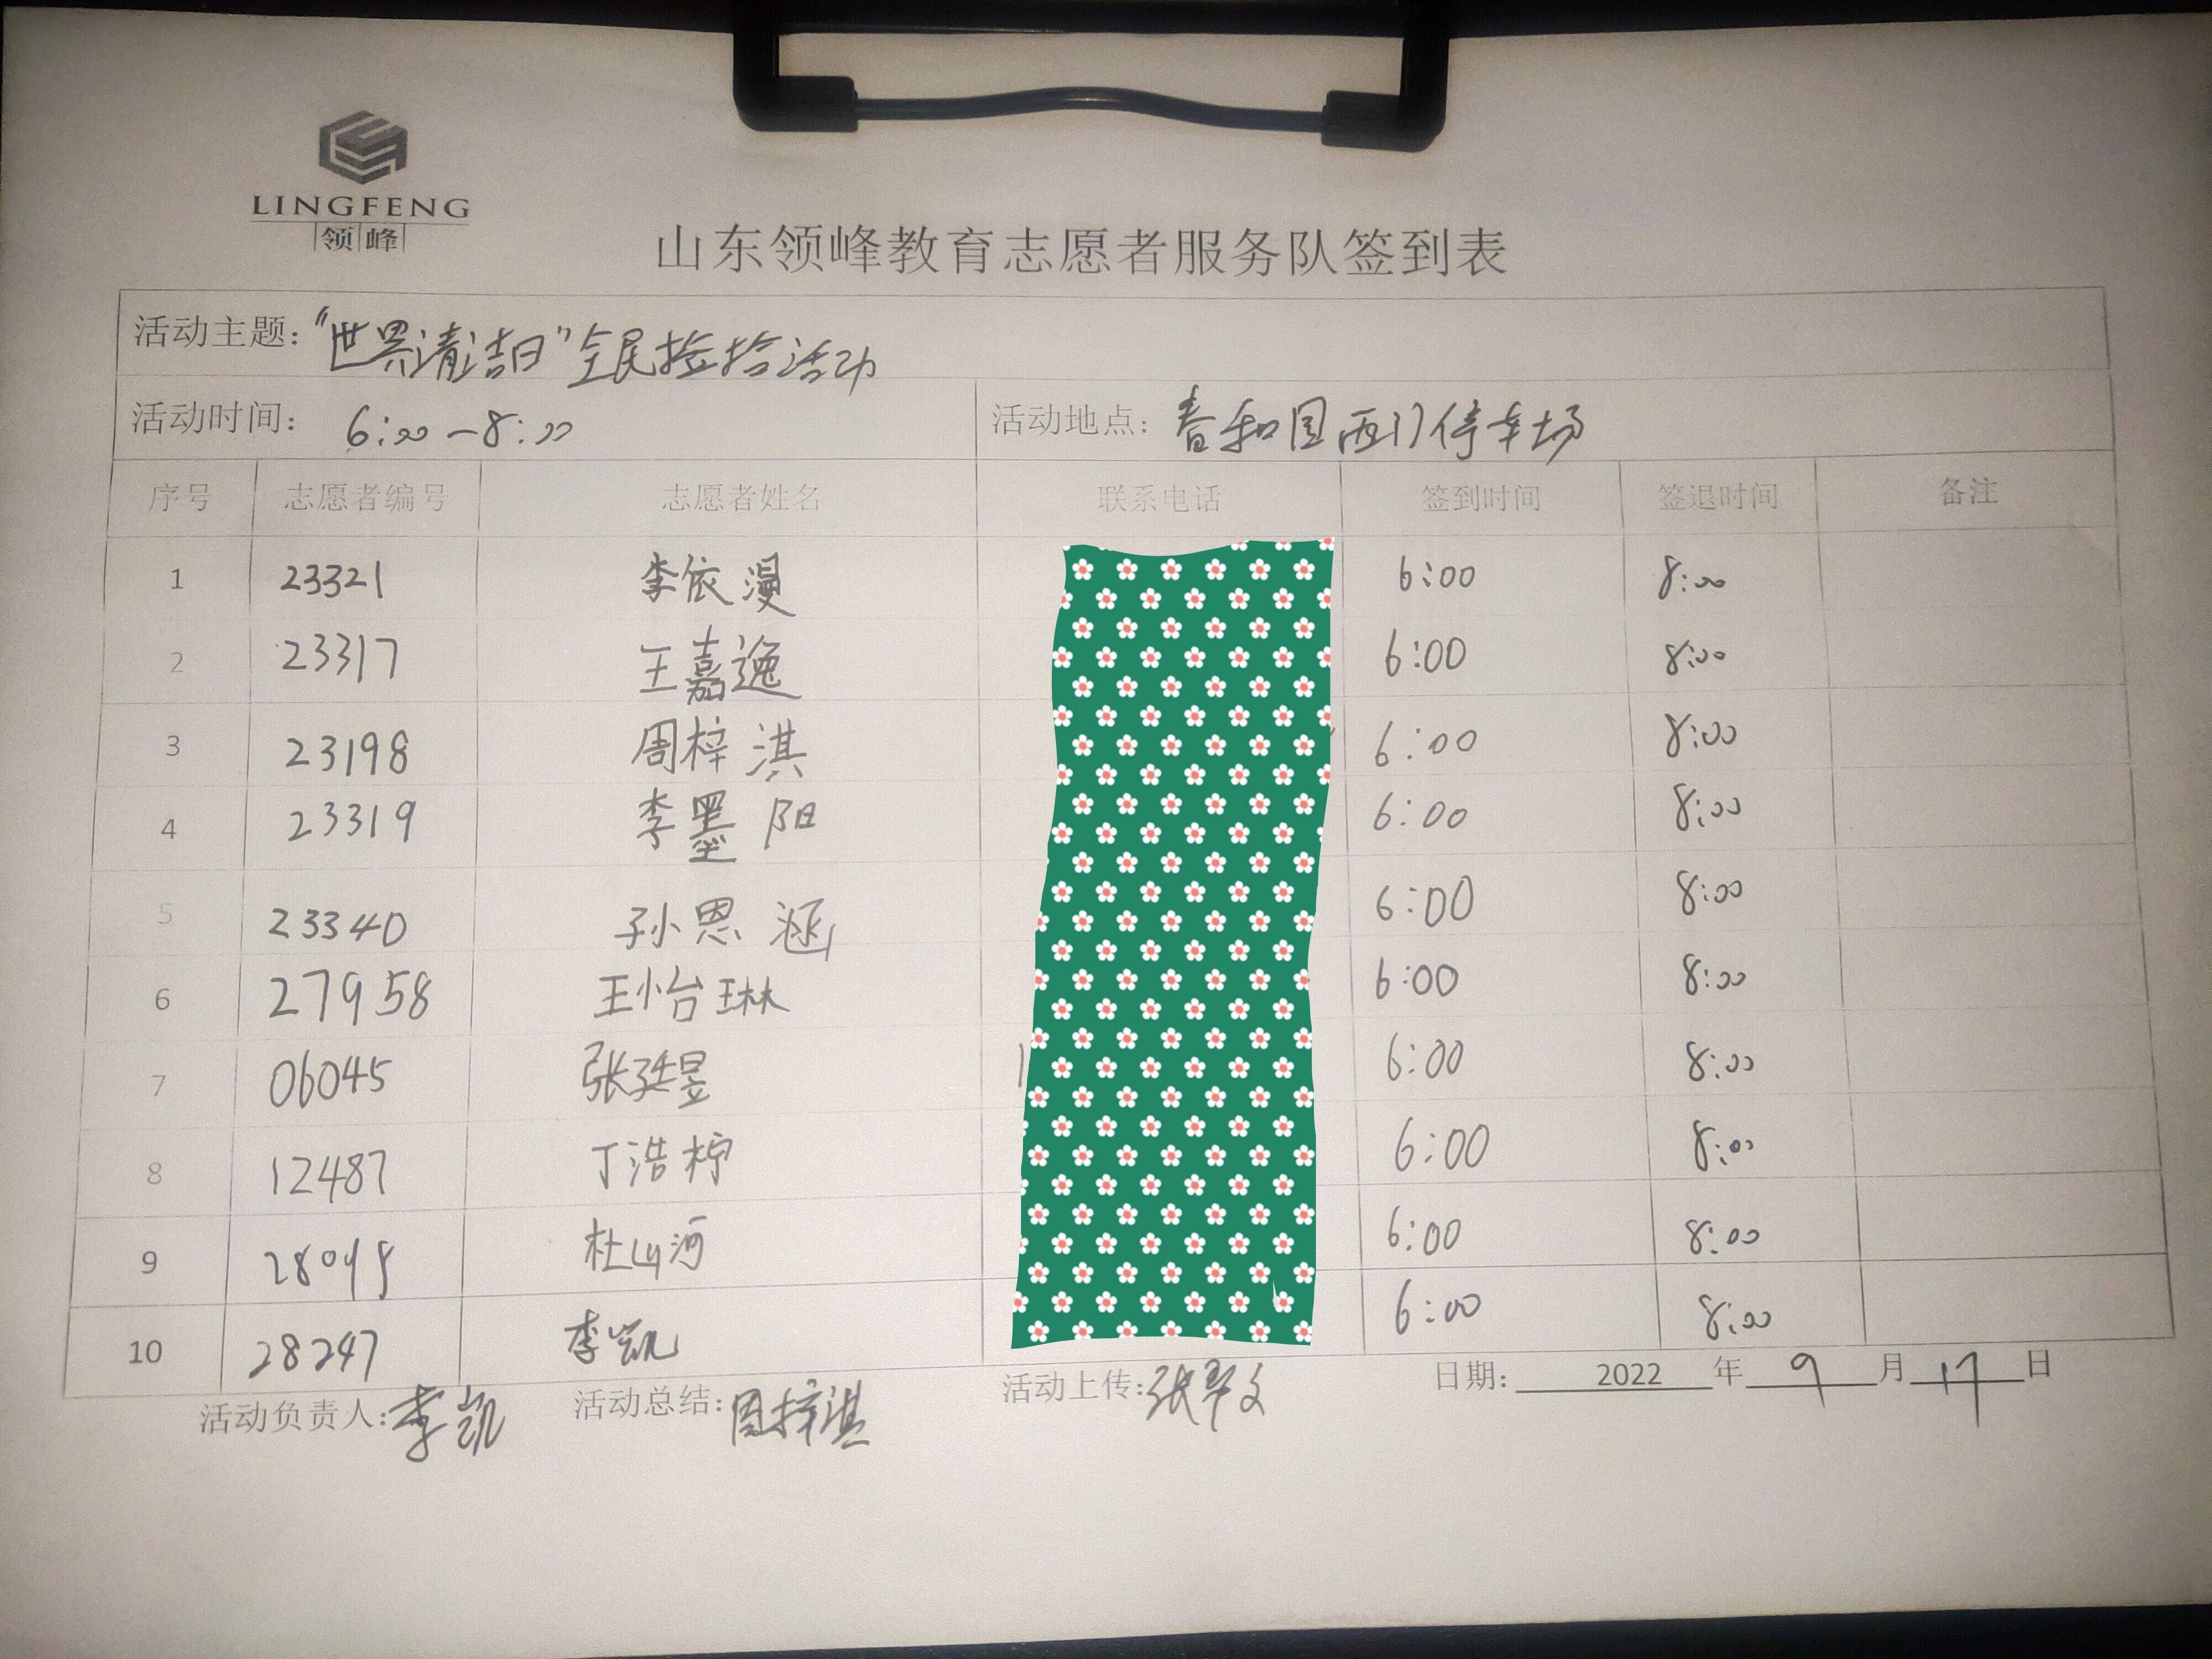 LINGFENG
领峰
山东领峰教育志愿者服务队签到表
活动主题：“世界清洁日”全民捡拾活动
活动时间： 6:00-8:00 活动地点：春和园西门停车场
序号 志愿者编号 志愿者姓名 联系电话 签到时间 签退时间 备注
1 23321 李依漫 6:00 8:00
2 23317 王嘉逸 6:00 8:00
3 23198 周梓淇 6:00 8:00
4 23319 李墨阳 6:00 8:00
5 23340 孙恩涵 6:00 8:00
6 27958 王怡琳 6:00 8:00
7 06045 张廷昱 6:00 8:00
8 12487 丁浩柠 6:00 8:00
9 杜山河 6:00 8:00
10 28247 李凯 6:00 8:00
活动负责人：李凯 活动总结：周梓淇 活动上传： 日期： 2022 年 9 月 17 日